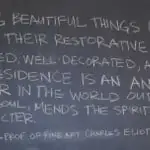 G BEAUTIFUL THINGS
THEIR RESTORATIVE
ED, WELL-DECORATED, A
ESIDENCE IS AN AN
R IN THE WORLD OU
OUL, MENDS THE SPIRIT
CTER.
PROF OF FINE ART CHARLES ELIOT